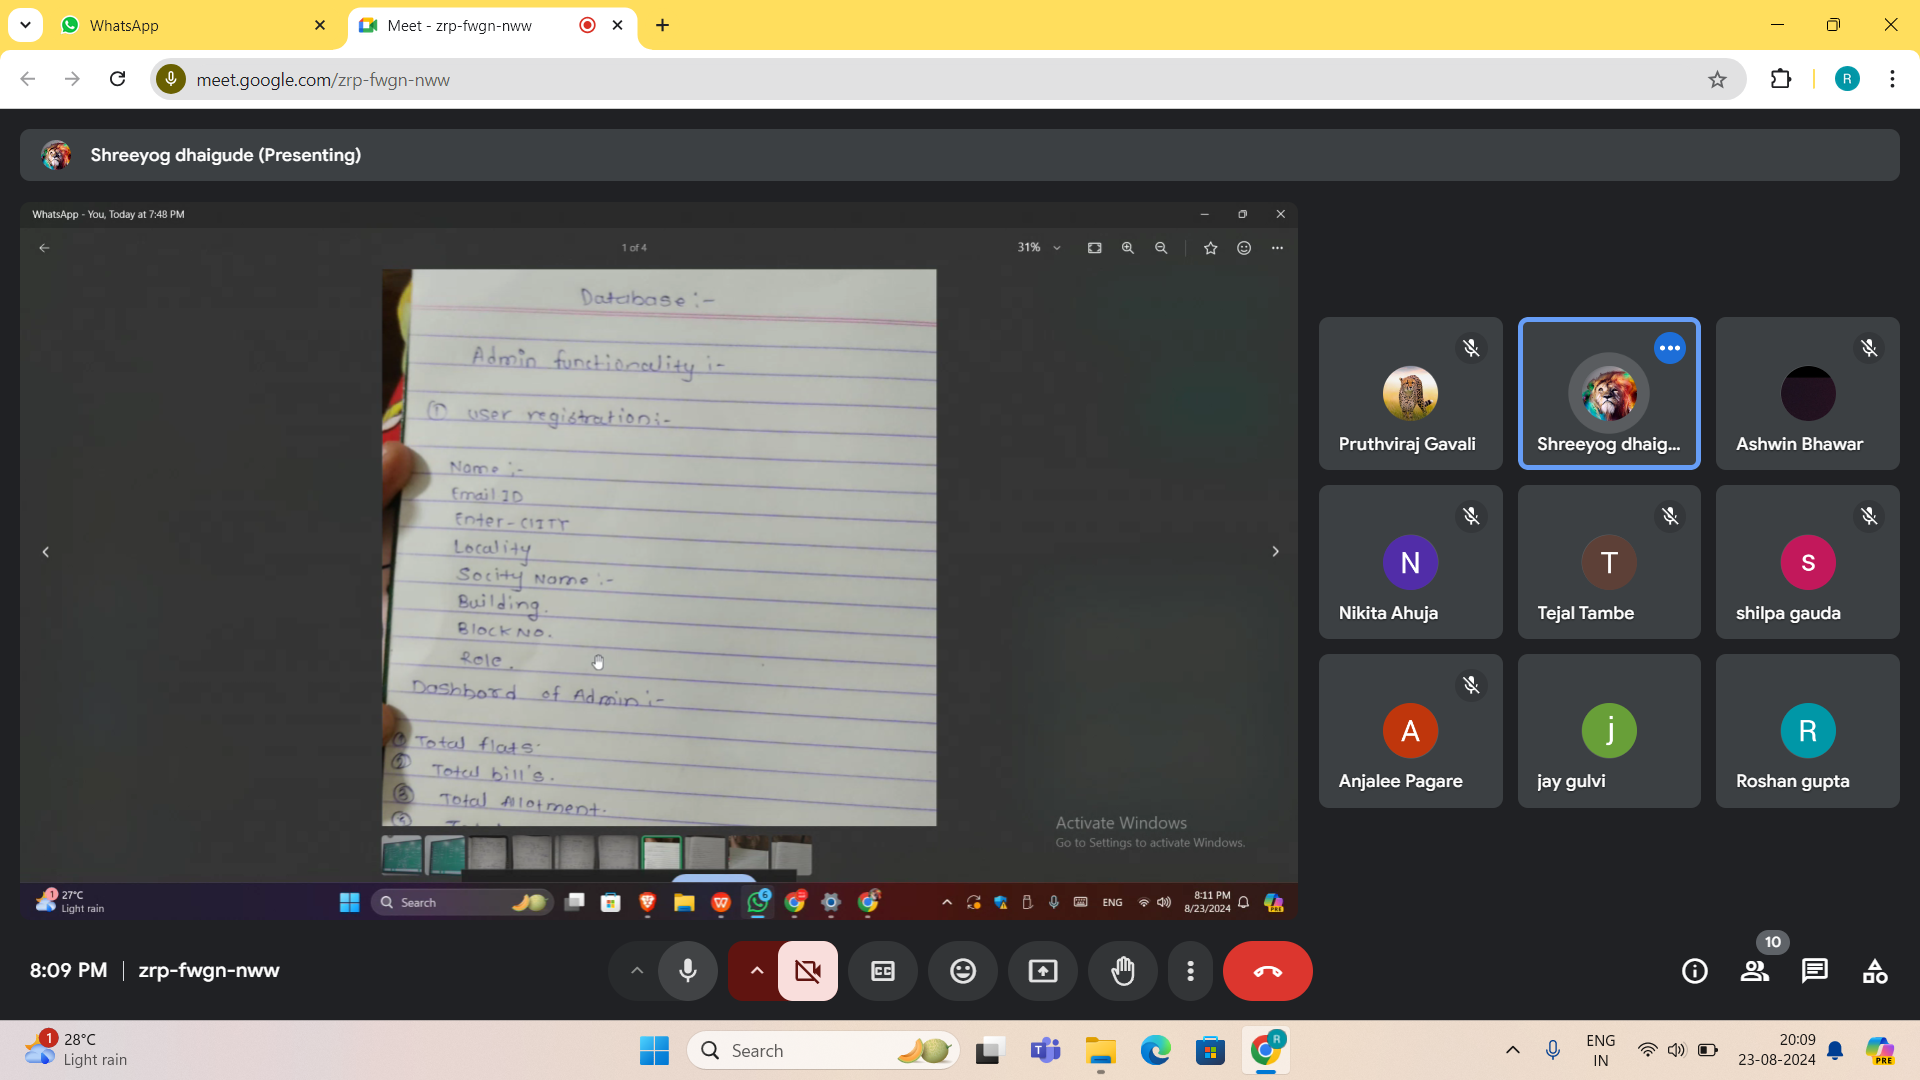 WhatsApp
Meet - zrp-fwgn-nww
meet.google.com/zrp-fwgn-nww
R
Shreeyog dhaigude (Presenting)
WhatsApp - You, Today at 7:48 PM
1 of 4
31%
Database :-
Admin functionality :-
① user registration :-
Name :-
Email ID
Enter - CIITY
Locality
Socity Name :-
Building.
Block No.
Role.
Dashbord of Admin :-
① Total flats.
② Total bill's.
③ Total Allotment.
Activate Windows
Go to Settings to activate Windows.
1
27°C
Light rain
Search
6
ENG
8:11 PM
8/23/2024
PRE
Pruthviraj Gavali
Shreeyog dhaig...
Ashwin Bhawar
N
Nikita Ahuja
T
Tejal Tambe
s
shilpa gauda
A
Anjalee Pagare
j
jay gulvi
R
Roshan gupta
8:09 PM | zrp-fwgn-nww
CC
10
1
28°C
Light rain
Search
R
ENG
IN
20:09
23-08-2024
PRE